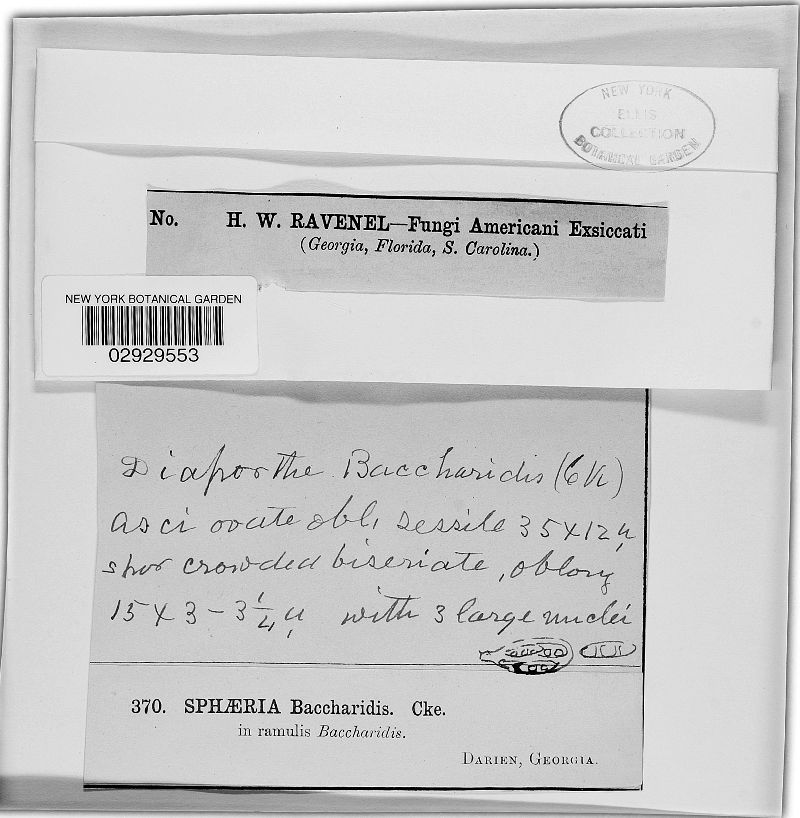 NEW YORK
ELLIS
COLLECTION
BOTANICAL GARDEN
No. H. W. RAVENEL—Fungi Americani Exsiccati
(Georgia, Florida, S. Carolina.)
NEW YORK BOTANICAL GARDEN
02929553
Diaporthe Baccharidis (Ck)
asci ovate obl, sessile 35 x 12 µ,
spor crowded biseriate, oblong
15 x 3 – 3 1/4 µ, with 3 large nuclei
370. SPHÆRIA Baccharidis. Cke.
in ramulis Baccharidis.
DARIEN, GEORGIA.